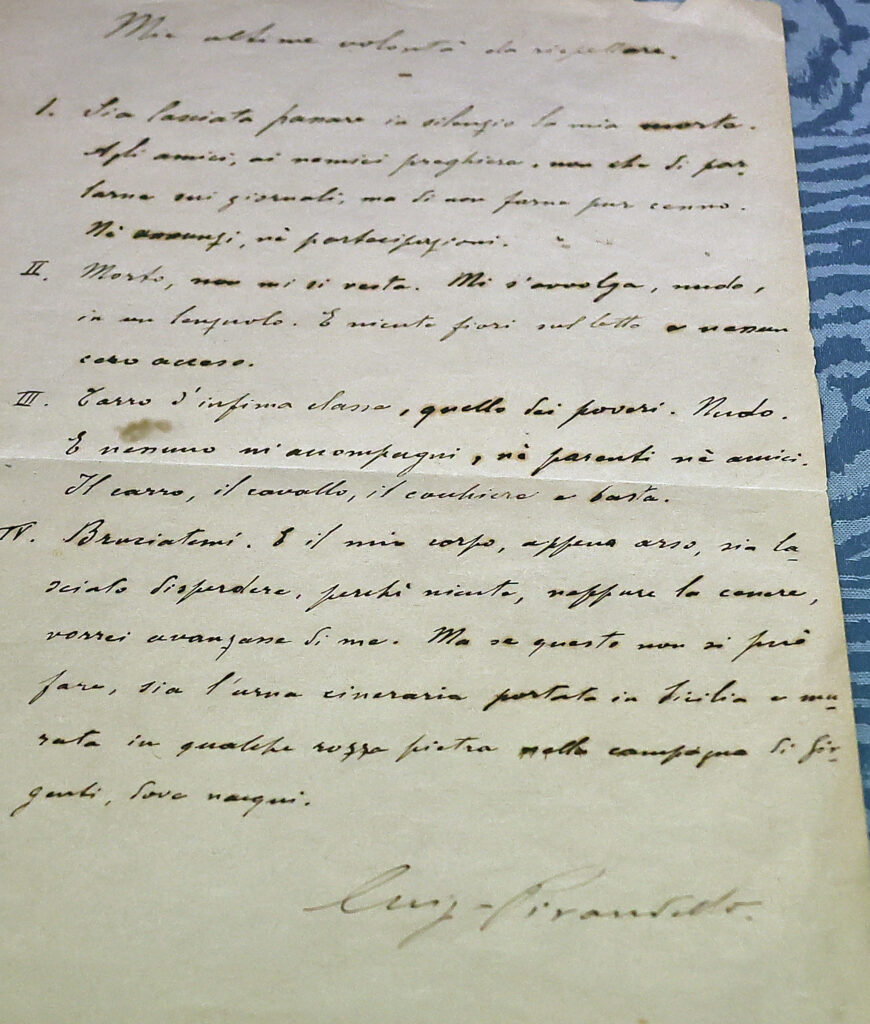 Mie ultime volontà da rispettare.
I. Sia lasciata passare in silenzio la mia morte.
Agli amici, ai nemici preghiera, non che di par-
larne sui giornali, ma di non farne pur cenno.
Nè annunzi, nè partecipazioni.
II. Morto, non mi si vesta. Mi s'avvolga, nudo,
in un lenzuolo. E niente fiori sul letto e nessun
cero acceso.
III. Carro d'infima classe, quello dei poveri. Nudo.
E nessuno m'accompagni, nè parenti nè amici.
Il carro, il cavallo, il cocchiere e basta.
IV. Bruciatemi. E il mio corpo, appena arso, sia la-
sciato disperdere, perchè niente, neppure la cenere,
vorrei avanzasse di me. Ma se questo non si può
fare, sia l'urna cineraria portata in Sicilia e mu-
rata in qualche rozza pietra nella campagna di Gir-
genti, dove nacqui.
Luigi Pirandello.